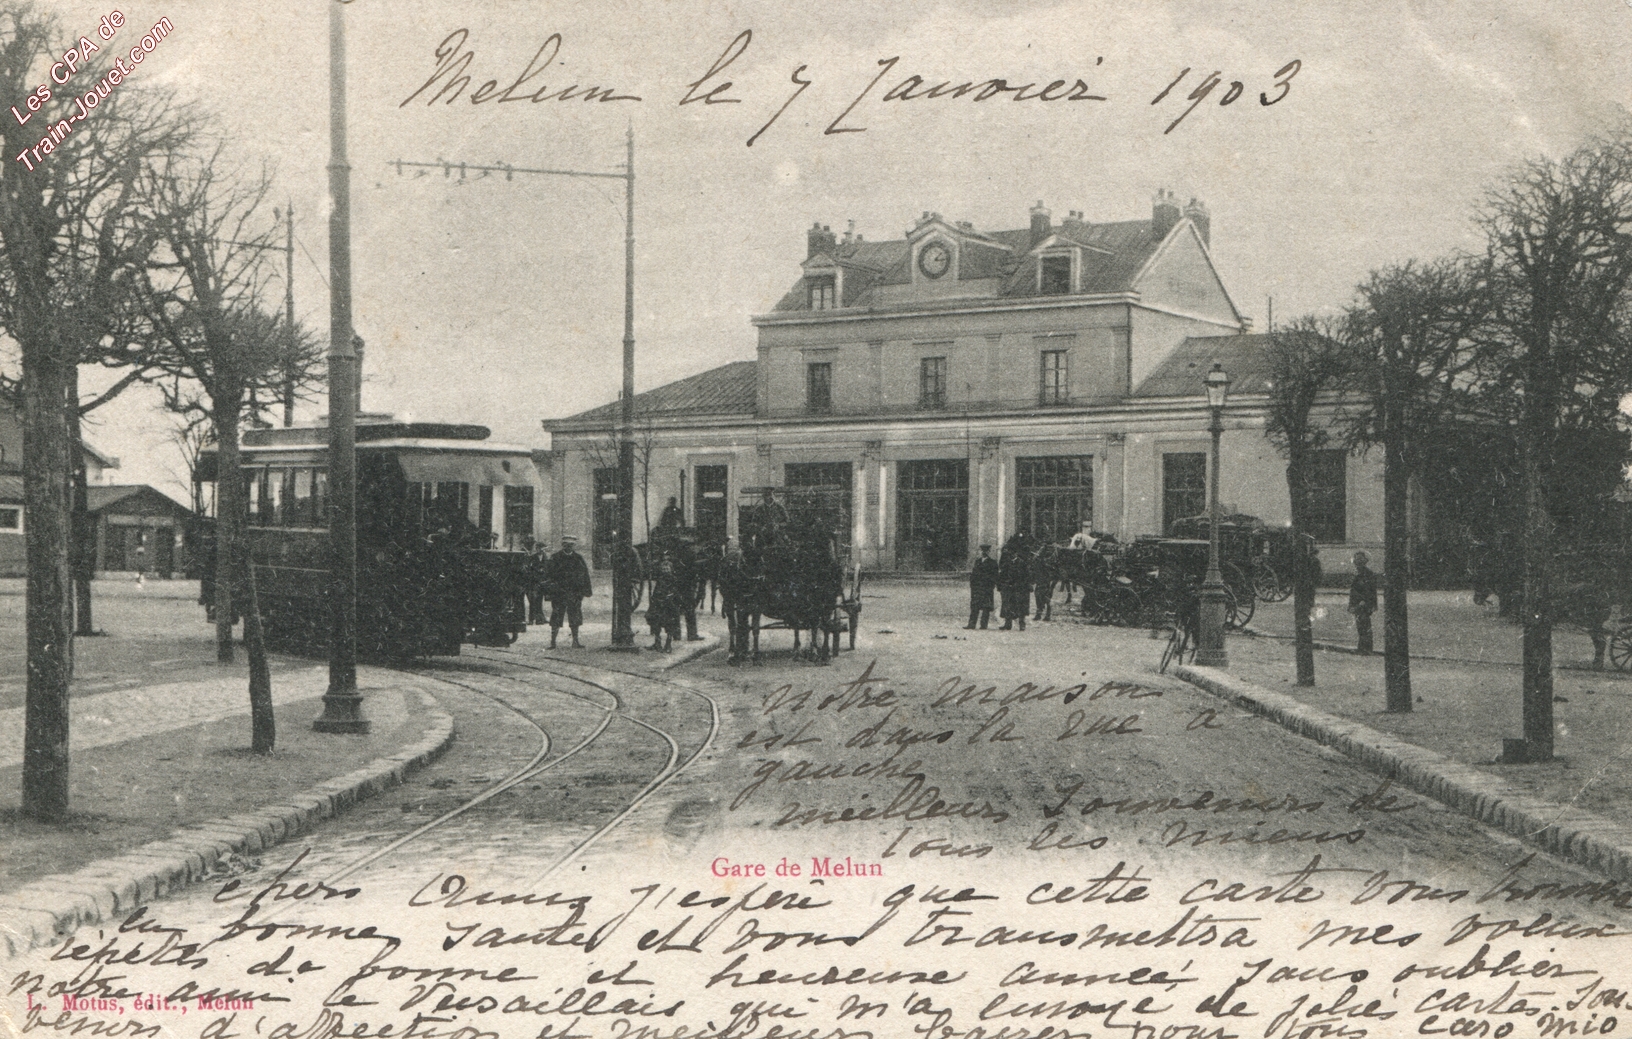 Les CPA de
Train-Jouet.com
Melun le 7 Janvier 1903
notre maison
est dans la rue a
gauche
meilleurs Souvenirs de
tous les miens
Gare de Melun
chers Amis j'espére que cette carte vous trouvera
en bonne santé et vous transmettra mes voeux
répétés de bonne et heureuse année, sans oublier
notre ami le Versaillais qui m'a envoyé de jolies cartes. Sou-
L. Motus, édit., Melun
venirs d'affection et meilleurs baisers pour tous caro mio